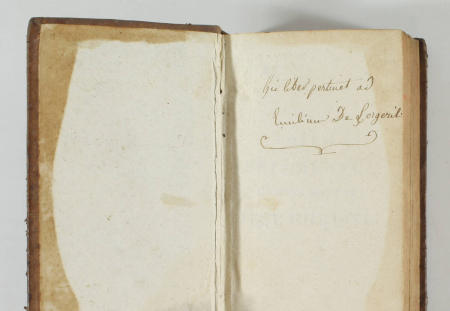 hic liber pertinet ad
Emilium De Lorgeril